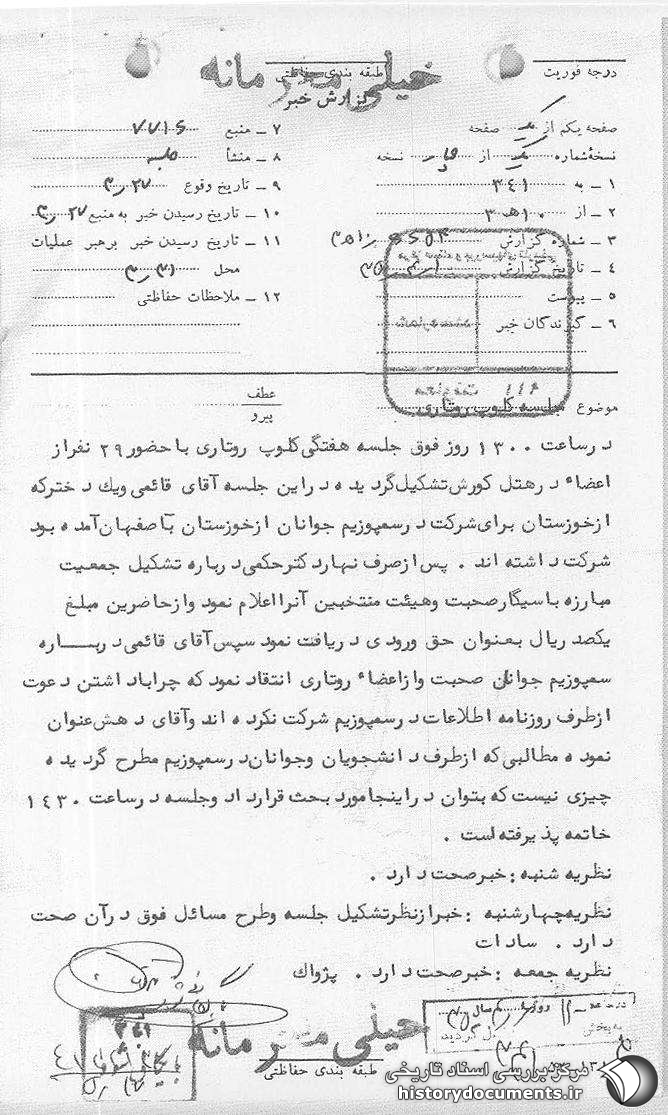 درجه فوریت
طبقه بندی حفاظتی
خیلی محرمانه
گزارش خبر
صفحه یکم از یک صفحه
نسخهٔ شماره یک از نسخه
۱ ــ به ۳٤۱
۲ ــ از ۱۰ هـ ۳
۳ ــ شماره گزارش
۴ ــ تاریخ گزارش
۵ ــ پیوست
۶ ــ گیرندگان خبر
۷ ــ منبع ۷۷۱۶
۸ ــ منشأ جلسه
۹ ــ تاریخ وقوع
۱۰ ــ تاریخ رسیدن خبر به منبع
۱۱ ــ تاریخ رسیدن خبر برهبر عملیات
محل
۱۲ ــ ملاحظات حفاظتی
عطف
پیرو
موضوع جلسه کلوپ روتاری
درساعت ۱۳۰۰ روز فوق جلسه هفتگی کلوپ روتاری باحضور ۲۹ نفراز
اعضاء درهتل کورش تشکیل گردیده دراین جلسه آقای قائمی ویك دخترکه
ازخوزستان برای شرکت درسمپوزیم جوانان ازخوزستان باصفهان آمده بود
شرکت داشته اند . پس ازصرف نهاردکترحکمی درباره تشکیل جمعیت
مبارزه باسیگارصحبت وهیئت منتخبین آنرااعلام نمود وازحاضرین مبلغ
یکصد ریال بعنوان حق ورودی دریافت نمود سپس آقای قائمی دربــاره
سمپوزیم جوانان صحبت وازاعضاء روتاری انتقاد نمود که چراباداشتن دعوت
ازطرف روزنامه اطلاعات درسمپوزیم شرکت نکرده اند وآقای دهش عنوان
نموده مطالبی که ازطرف دانشجویان وجوانان درسمپوزیم مطرح گردیده
چیزی نیست که بتوان دراینجا مورد بحث قرارداد وجلسه درساعت ۱٤۳۰
خاتمه پذیرفته است .
نظریه شنبه : خبرصحت دارد .
نظریه چهارشنبه : خبرازنظرتشکیل جلسه وطرح مسائل فوق درآن صحت
دارد . سادات
نظریه جمعه : خبرصحت دارد . پژواك
خیلی محرمانه
طبقه بندی حفاظتی
مرکز بررسی اسناد تاریخی
historydocuments.ir